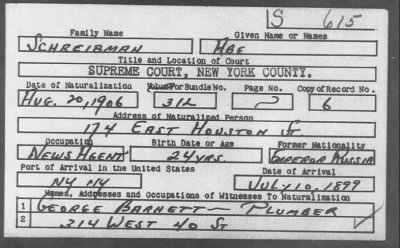 S 615
Family Name Given Name or Names
SCHREIBMAN ABE
Title and Location of Court
SUPREME COURT, NEW YORK COUNTY.
Date of Naturalization Volume or Bundle No. Page No. Copy of Record No.
AUG. 20, 1906 312 6
Address of Naturalized Person
174 EAST HOUSTON ST.
Occupation Birth Date or Age Former Nationality
NEWS AGENT 24 YRS. EMPEROR RUSSIA
Port of Arrival in the United States Date of Arrival
NY NY JULY 10, 1899
Names, Addresses and Occupations of Witnesses To Naturalization
1 GEORGE BARNETT — PLUMBER
2 314 WEST 40 ST